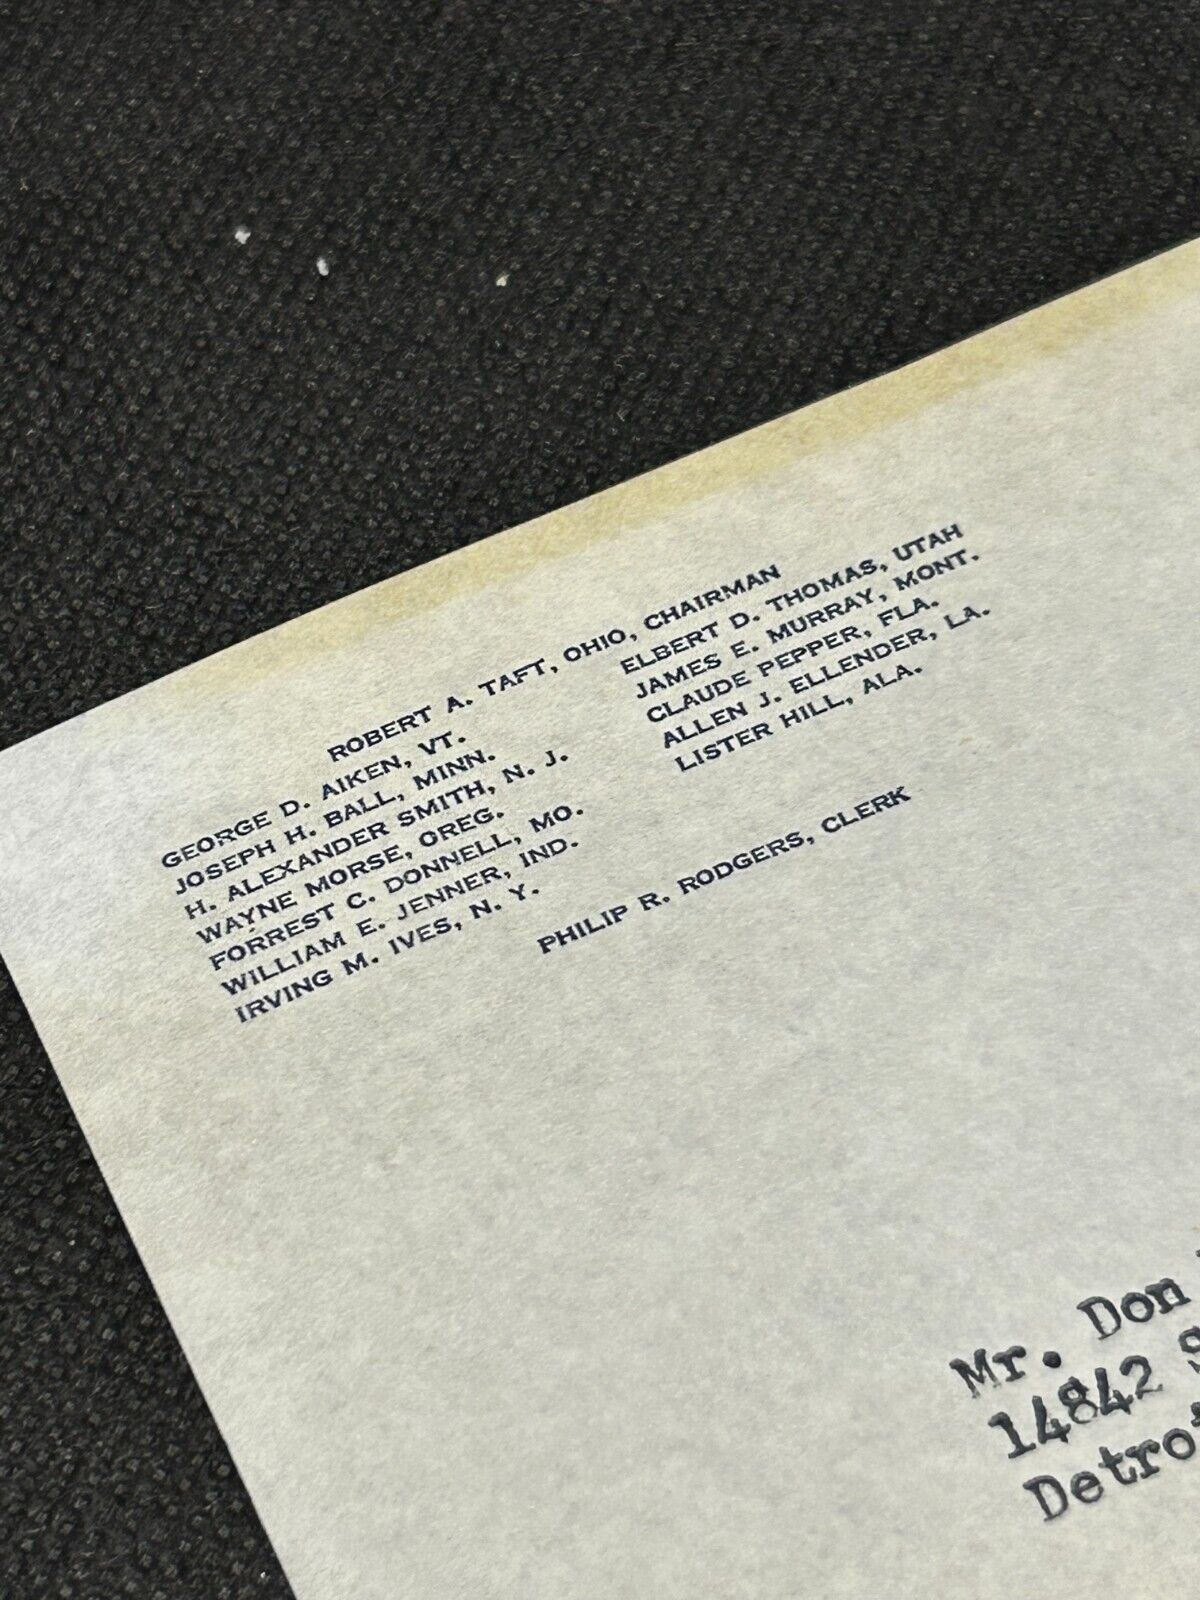 ROBERT A. TAFT, OHIO, CHAIRMAN
GEORGE D. AIKEN, VT.
JOSEPH H. BALL, MINN.
H. ALEXANDER SMITH, N. J.
WAYNE MORSE, OREG.
FORREST C. DONNELL, MO.
WILLIAM E. JENNER, IND.
IRVING M. IVES, N. Y.
ELBERT D. THOMAS, UTAH
JAMES E. MURRAY, MONT.
CLAUDE PEPPER, FLA.
ALLEN J. ELLENDER, LA.
LISTER HILL, ALA.
PHILIP R. RODGERS, CLERK
Mr. Don
14842 S
Detro